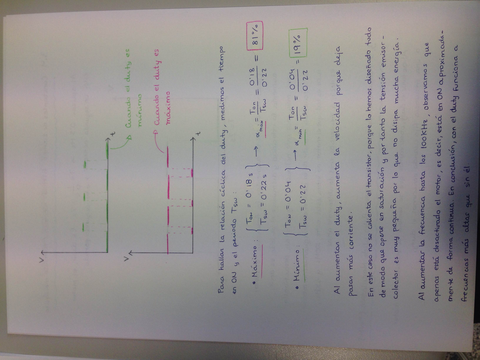 V
t
→ Cuando el duty es
mínimo
V
t
→ Cuando el duty es
máximo
Para hallar la relación cíclica del duty, medimos el tiempo
en ON y el periodo Tsw:
• Máximo { Ton = 0'18 s → αmax = Ton / Tsw = 0'18 / 0'22 = 81%
Tsw = 0'22 s
• Mínimo { Ton = 0'04 → αmin = Ton / Tsw = 0'04 / 0'22 = 19%
Tsw = 0'22
Al aumentar el duty, aumenta la velocidad porque deja
pasar más corriente.
En este caso no se calienta el transistor, porque lo hemos diseñado todo
de modo que opere en saturación y por tanto la tensión emisor-
colector es muy pequeña por lo que no disipa mucha energía.
Al aumentar la frecuencia hasta los 100KHz, observamos que
apenas está desactivado el motor, es decir, está en ON aproximada-
mente de forma continua. En conclusión, con el duty funciona a
frecuencias más altas que sin él